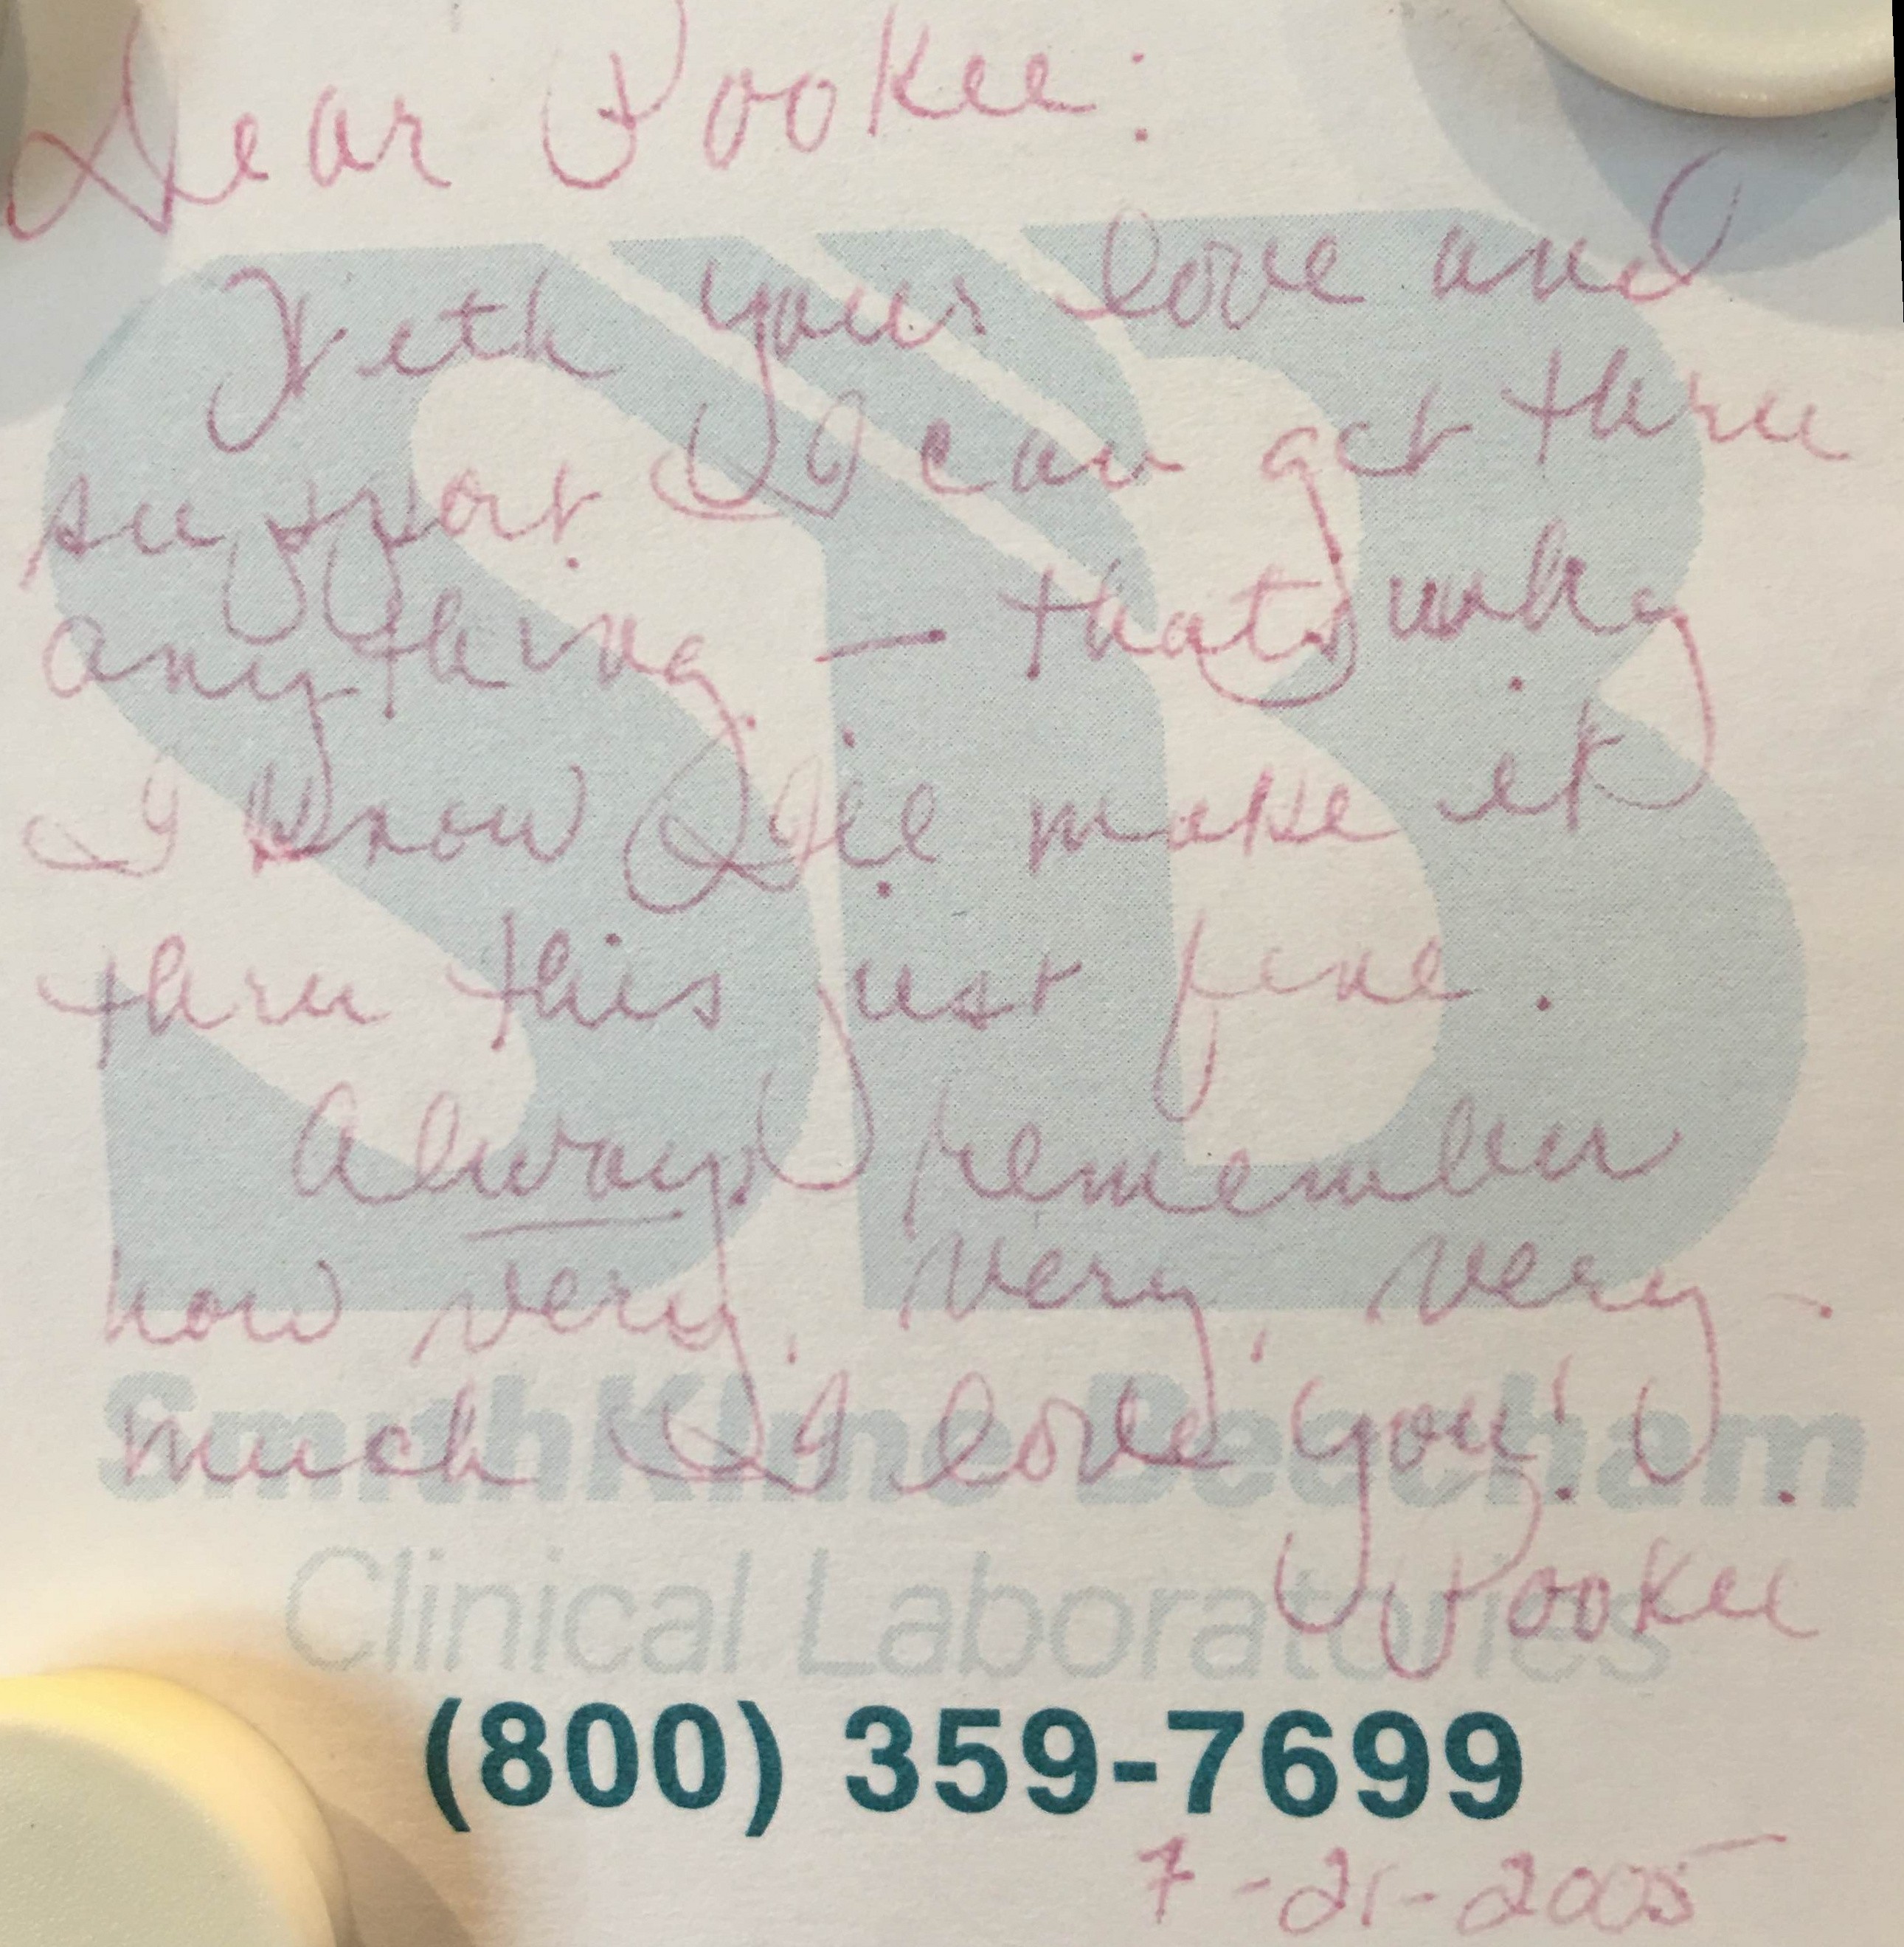 Dear Pookee:
With your love and
support I can get thru
anything — that's why
I know I'll make it
thru this just fine.
Always remember
how very, very, very
much I love you!
Pookee
SB
SmithKline Beecham
Clinical Laboratories
(800) 359-7699
7-21-2005